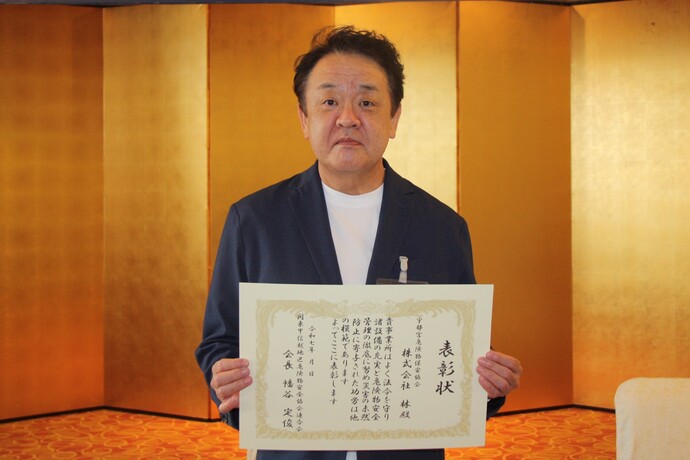 表彰状
宇都宮危険物保安協会
株式会社 林 殿
貴事業所はよく法令を守り
諸設備の充実と危険物安全
管理の徹底に努め災害の未然
防止に寄与された功労は他
の模範であります
よってここに表彰します
令和七年 月 日
関東甲信越地区危険物安全協会連合会
会長 桶谷 定俊